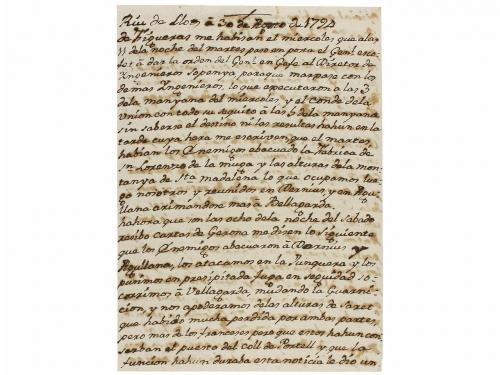 Riu de Llors a 30 de Agosto de 1794
de Figueras me habisan el miercoles que a las
11 de la noche del martes paso en posta el Genl.
a dar la orden del Genl. en Gefe al Diretor de
Ingenieros Sapenya paraque marpase con lo
demas Ingenieros, lo que executaron a las 3
de la manyana del miercoles y el Conde de la
Union con todo su sequito a las 6 de la manyana
sin saberse el destino ni las resultas hahun en la
tarde cuya hora me escriven, que al martes
habian los Enemigos abacuado la Fabrica de
Sn. Lorenzo de la muga y las alturas de la mon-
tanya de Sta. madalena lo que ocupamos lue-
go nosotros y reunidos en Darnius y en Agu-
llana arimandose mas a Bellagarda.
hahora que son las ocho de la noche del Sabado
recibo Cartas de Gerona me disen lo siguiente
que los Enemigos abacuaron a Darnius y
Agullana, los atacamos en la Junquera y los
pusimos en presipitada fuga en seguidad so-
corrimos a Vellagarda, mudando la Guarni-
cion, y nos apoderamos de las alturas de
que habido mucha perdida por ambas partes,
pero mas de los franceses pero que estos hahun con-
serban el puesto del Coll de Portell y que la
funcion hahun duraba esta noticia le dio un